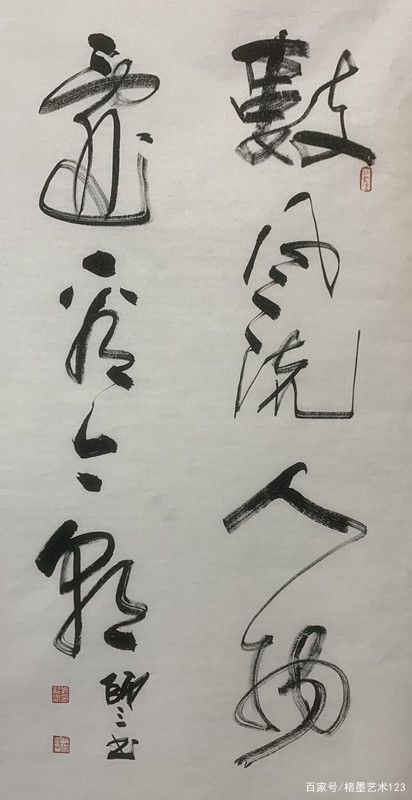 數风流人物
還看今朝
百家号/楮墨艺术123